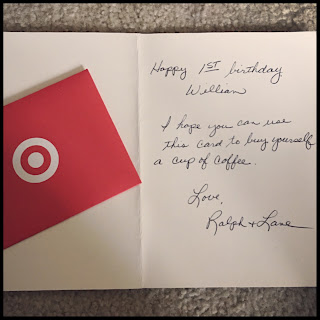 Happy 1ST birthday
William
I hope you can use
this card to buy yourself
a cup of coffee.
Love,
Ralph + Lane